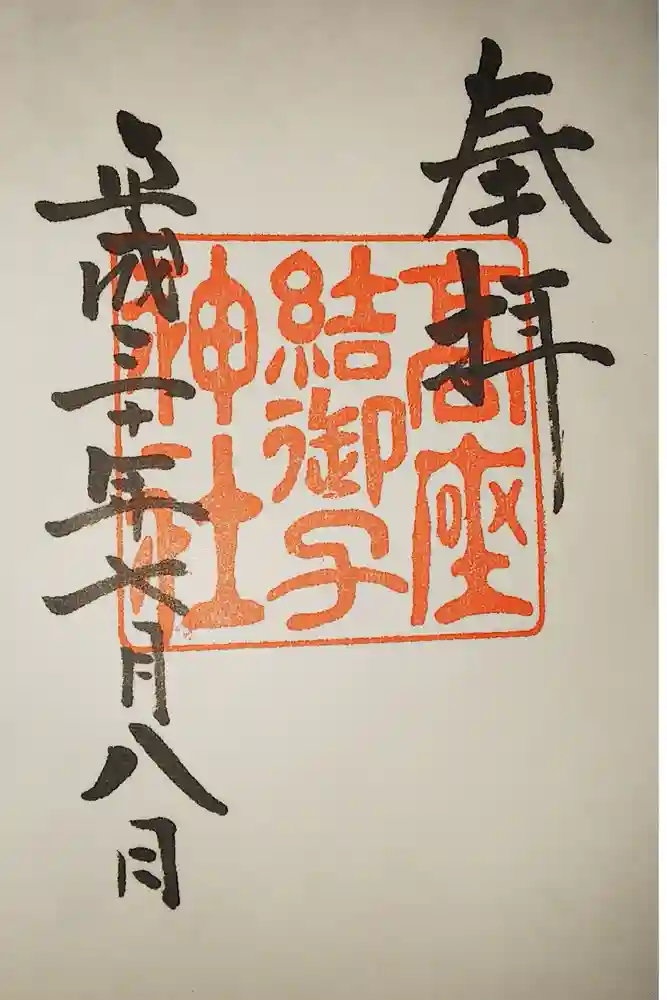 奉拝
高座
結御子
神社
平成三十年七月八日